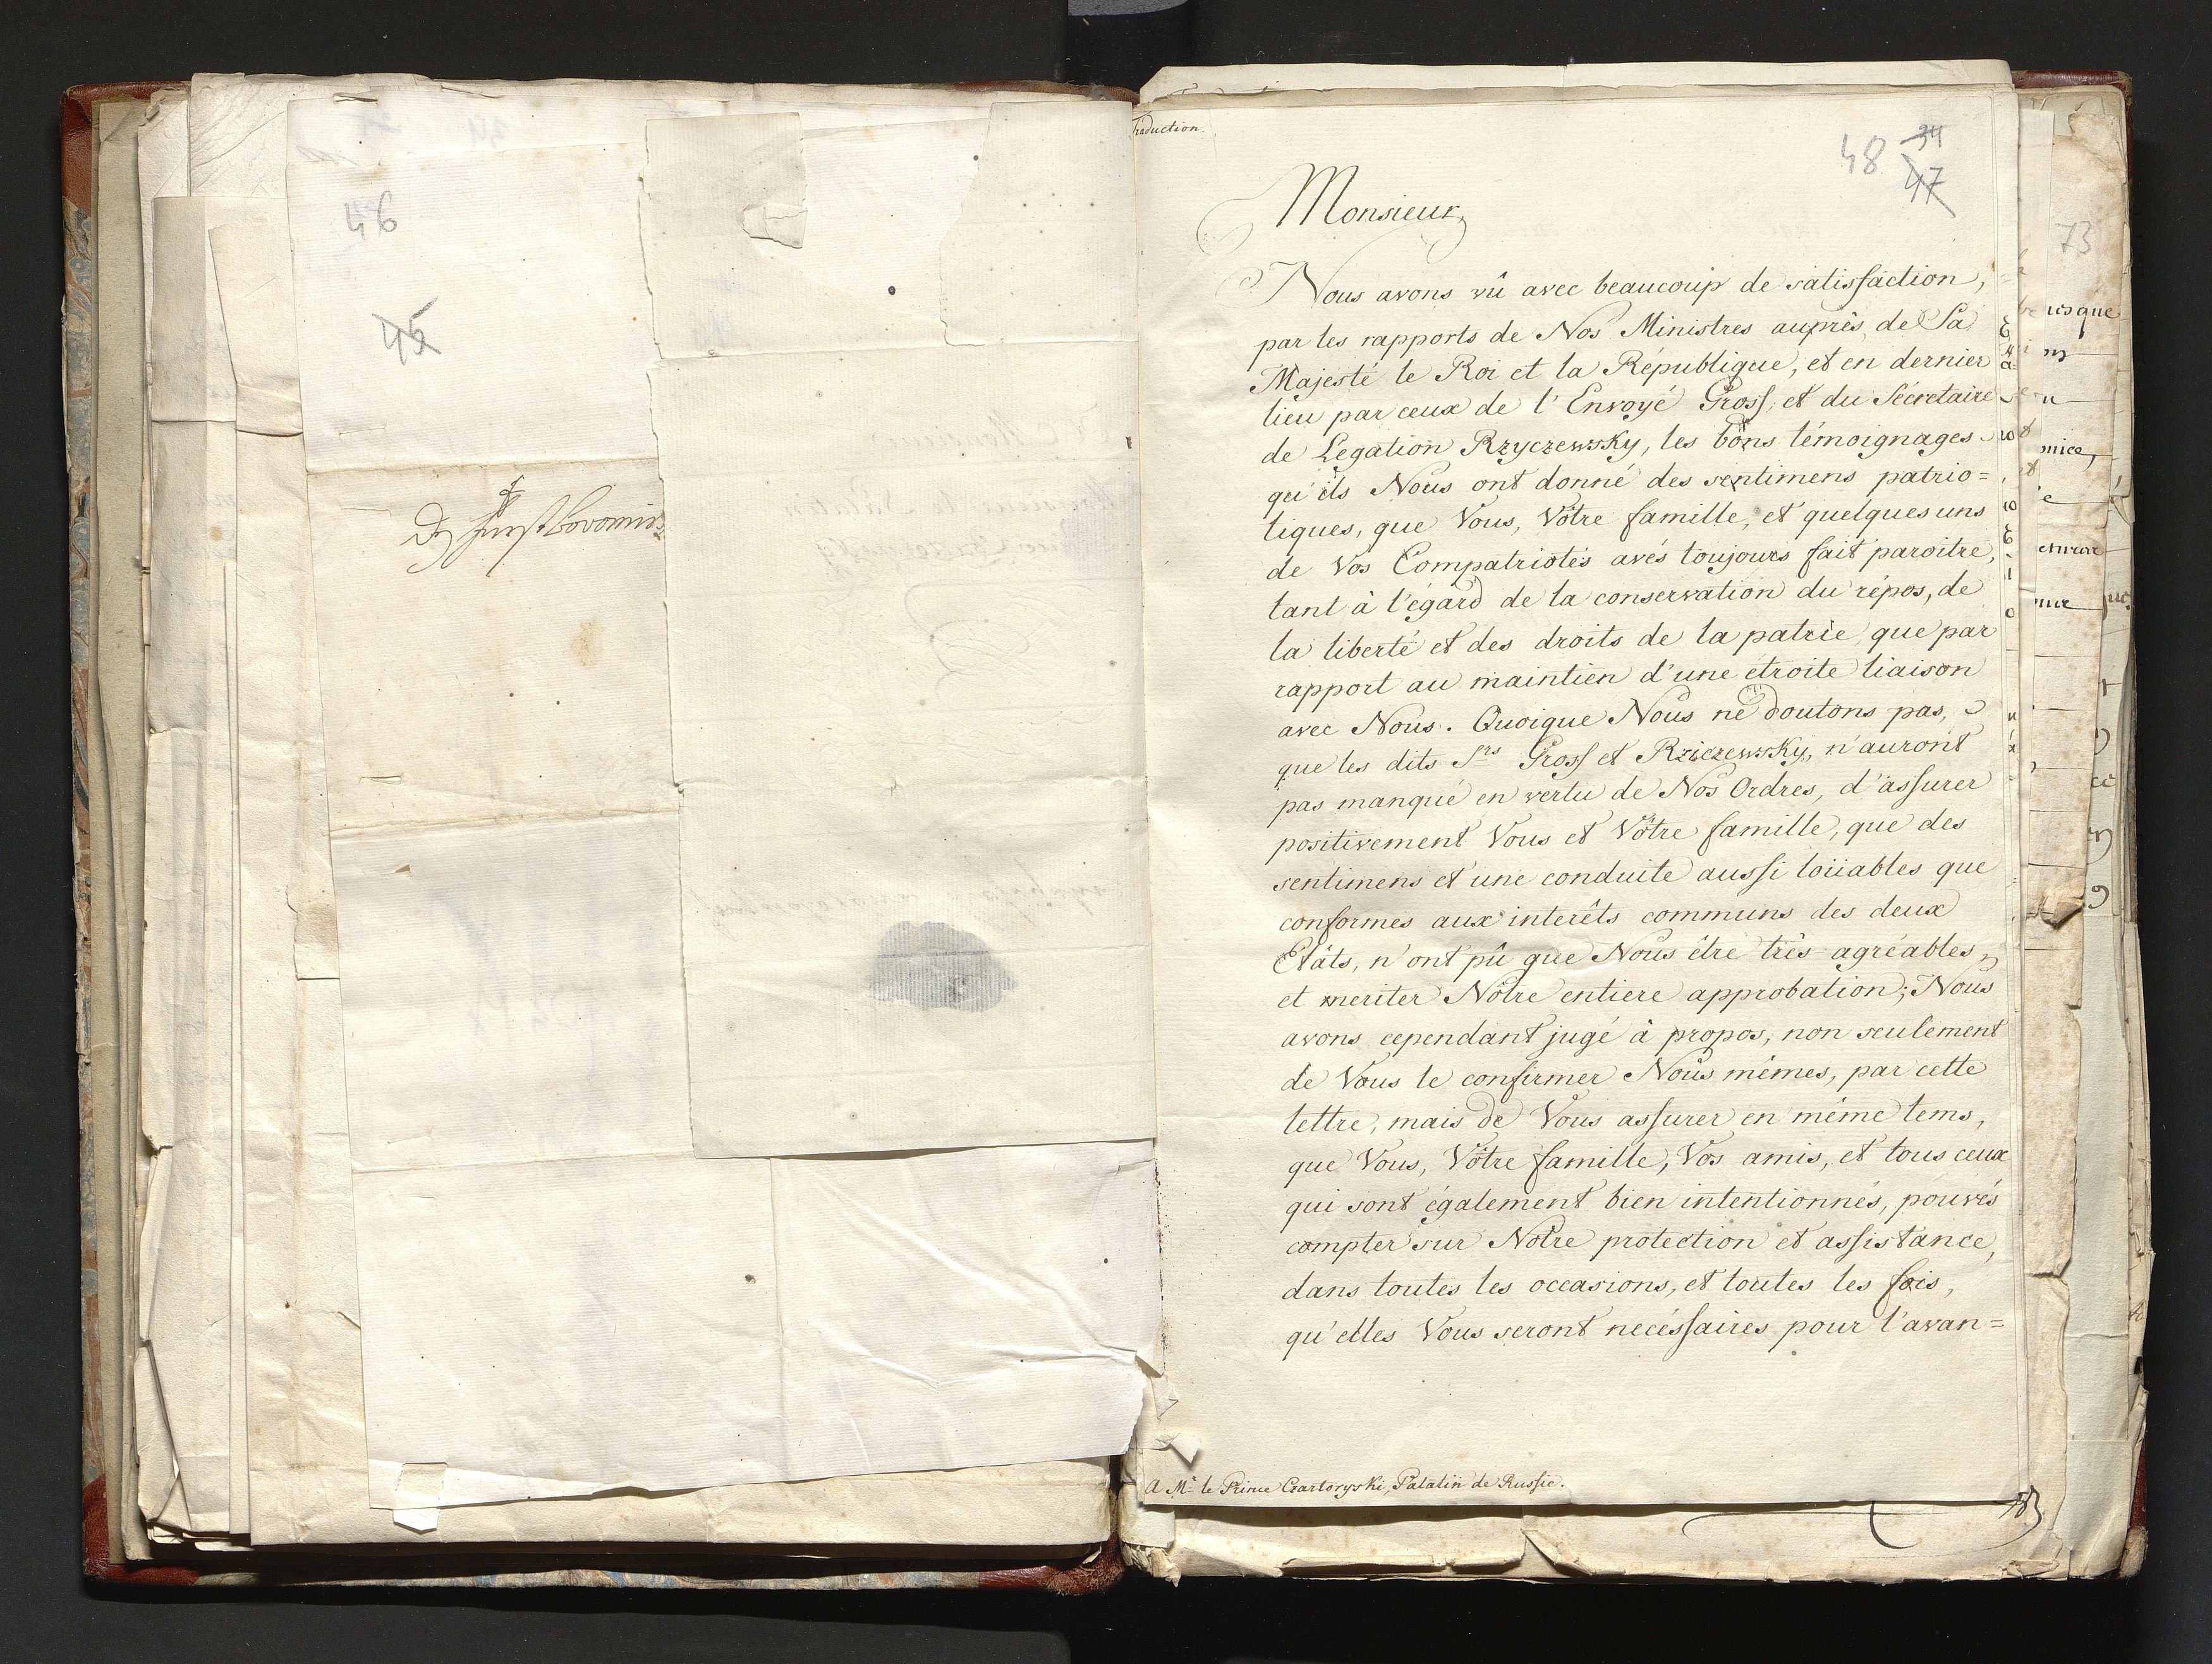 46
45
Traduction.
48 34
47
73
Monsieur,
Nous avons vû avec beaucoup de satisfaction,
par les rapports de Nos Ministres auprès de Sa
Majesté le Roi et la République, et en dernier
lieu par ceux de l'Envoyé Gross, et du Sécretaire
de Legation Rzyczewsky, les bons témoignages
qu'ils Nous ont donné des sentimens patrio=
tiques, que Vous, Vôtre famille, et quelques uns
de Vos Compatriotes avés toujours fait paroitre,
tant à l'égard de la conservation du répos, de
la liberté et des droits de la patrie, que par
rapport au maintien d'une etroite liaison
avec Nous. Quoique Nous ne doutons pas,
que les dits Srs Gross et Rziczewsky, n'auront
pas manqué en vertu de Nos Ordres, d'assurer
positivement Vous et Vôtre famille, que des
sentimens et une conduite aussi loüables que
conformes aux interêts communs des deux
Etâts, n'ont pû que Nous être très-agréables,
et meriter Nôtre entiere approbation; Nous
avons cependant jugé à propos, non seulement
de Vous le confirmer Nous mêmes, par cette
lettre, mais de Vous assurer en même tems,
que Vous, Vôtre famille, Vos amis, et tous ceux
qui sont également bien intentionnés, pouvés
compter sur Nôtre protection et assistance,
dans toutes les occasions, et toutes les fois,
qu'elles Vous seront necéssaires pour l'avan=
A Mr. le Prince Czartoryski, Palatin de Russie.